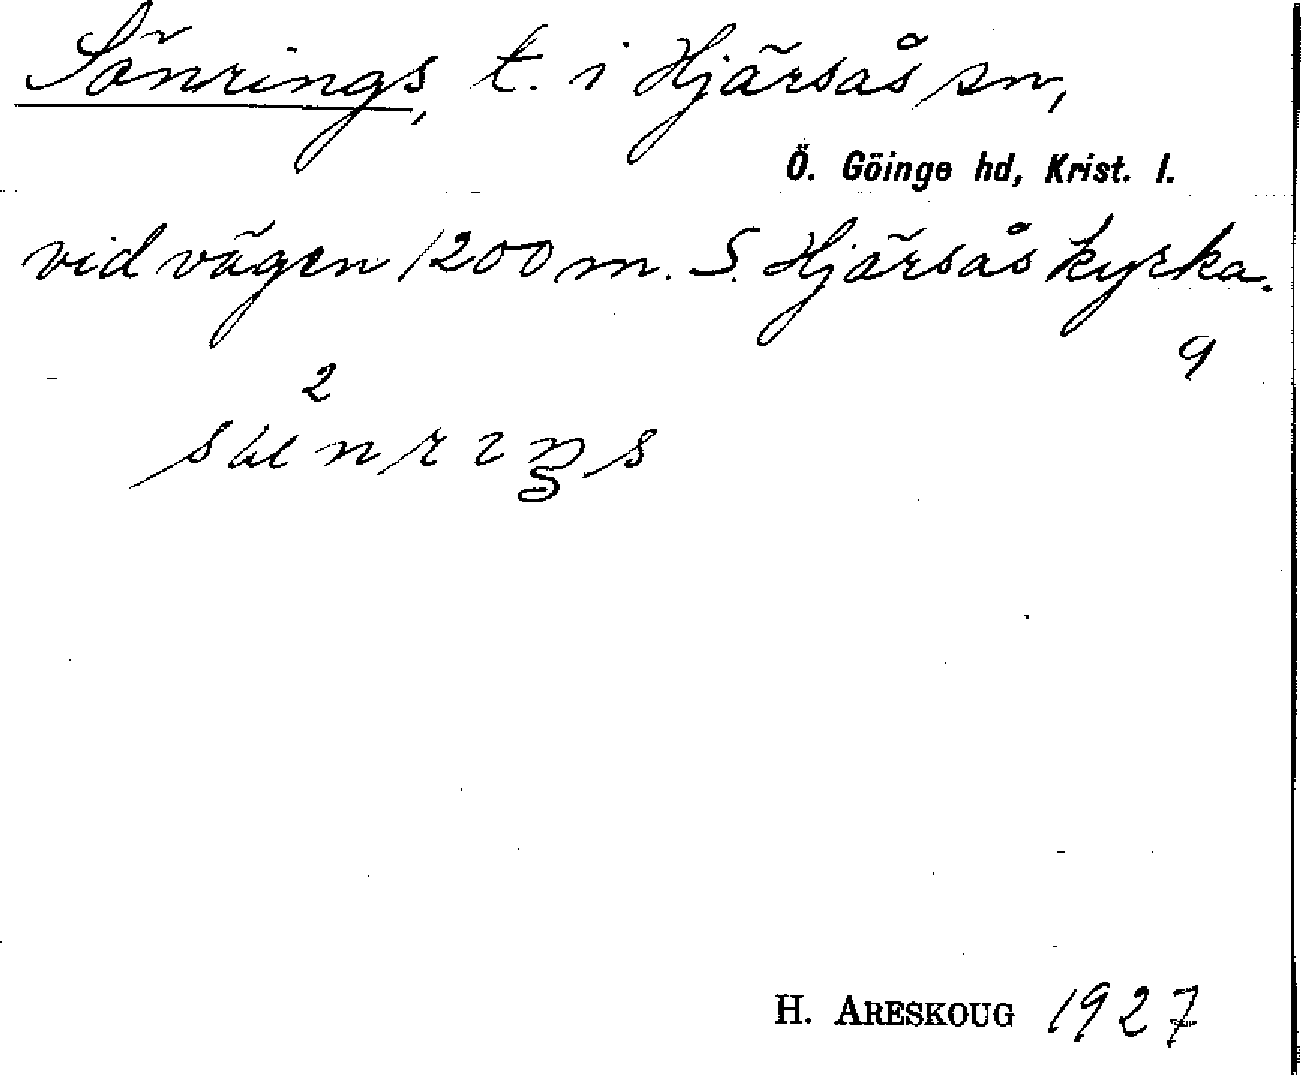 Sönrings, t. i Hjärsås sn,
Ö. Göinge hd, Krist. l.
vid vägen 1200 m. S. Hjärsås kyrka.
9
2
H. ARESKOUG 1927